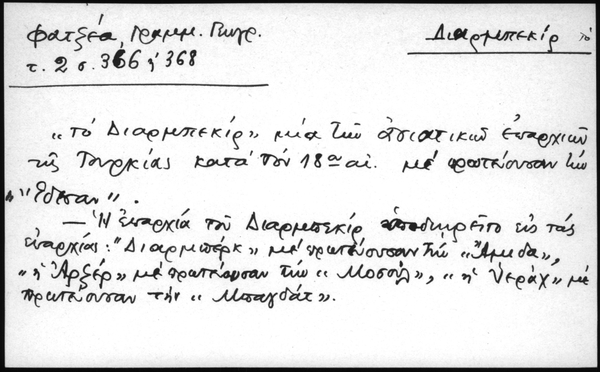 Φατζέα, Γραμμ. Γεωγρ.
Διαρμπεκίρ τό
τ. 2 σ. 366 ή 368
"τό Διαρμπεκίρ" μία τῶν ἀσιατικῶν ἐπαρχιῶν
τῆς Τουρκίας κατά τόν 18ον αἰ. μέ πρωτεύουσαν τήν
"Ἔδεσαν".
— Ἡ ἐπαρχία τοῦ Διαρμπεκίρ ὑποδιῃρεῖτο εἰς τάς
ἐπαρχίας: "Διαρμπέρκ" μέ πρωτεύουσαν τήν "Ἄμεδα",
"ἡ Ἀρζέρ" μέ πρωτεύουσαν τήν "Μοσούλ", "ἡ Ἱεράχ" μέ
πρωτεύουσαν τήν "Μπαγδάτ".